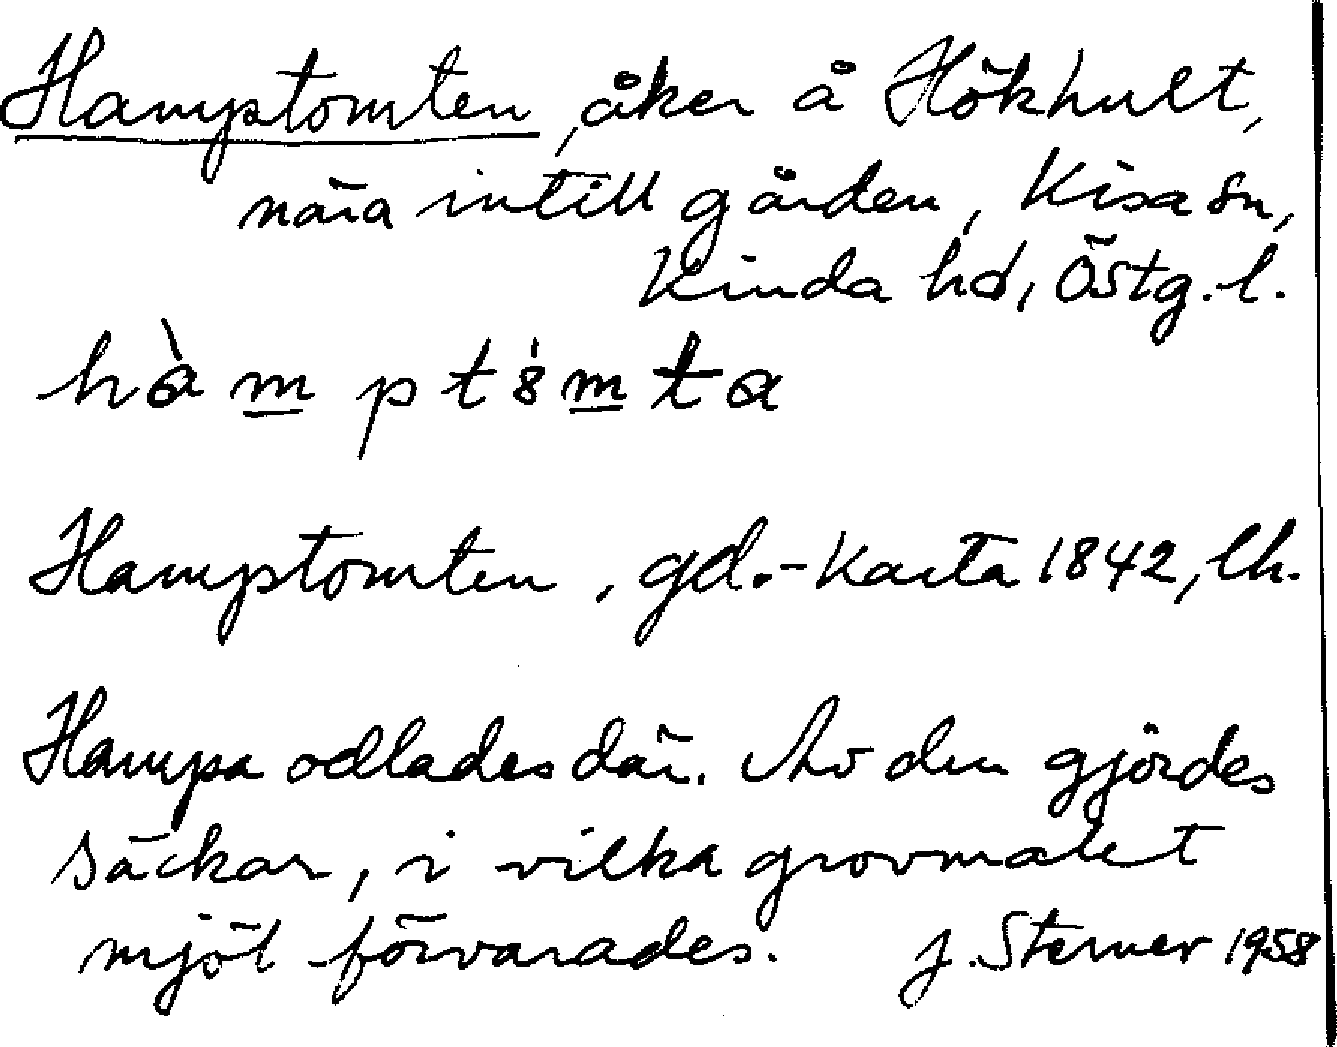 Hamptomten, åker å Hökhult,
nära intill gården, Kisa sn,
Kinda hd, Östg. l.
hàmptómta
Hamptomten, gd.-karta 1842, lh.
Hampa odlades där. Av den gjordes
säckar, i vilka grovmalet
mjöl förvarades. J. Sterner 1958